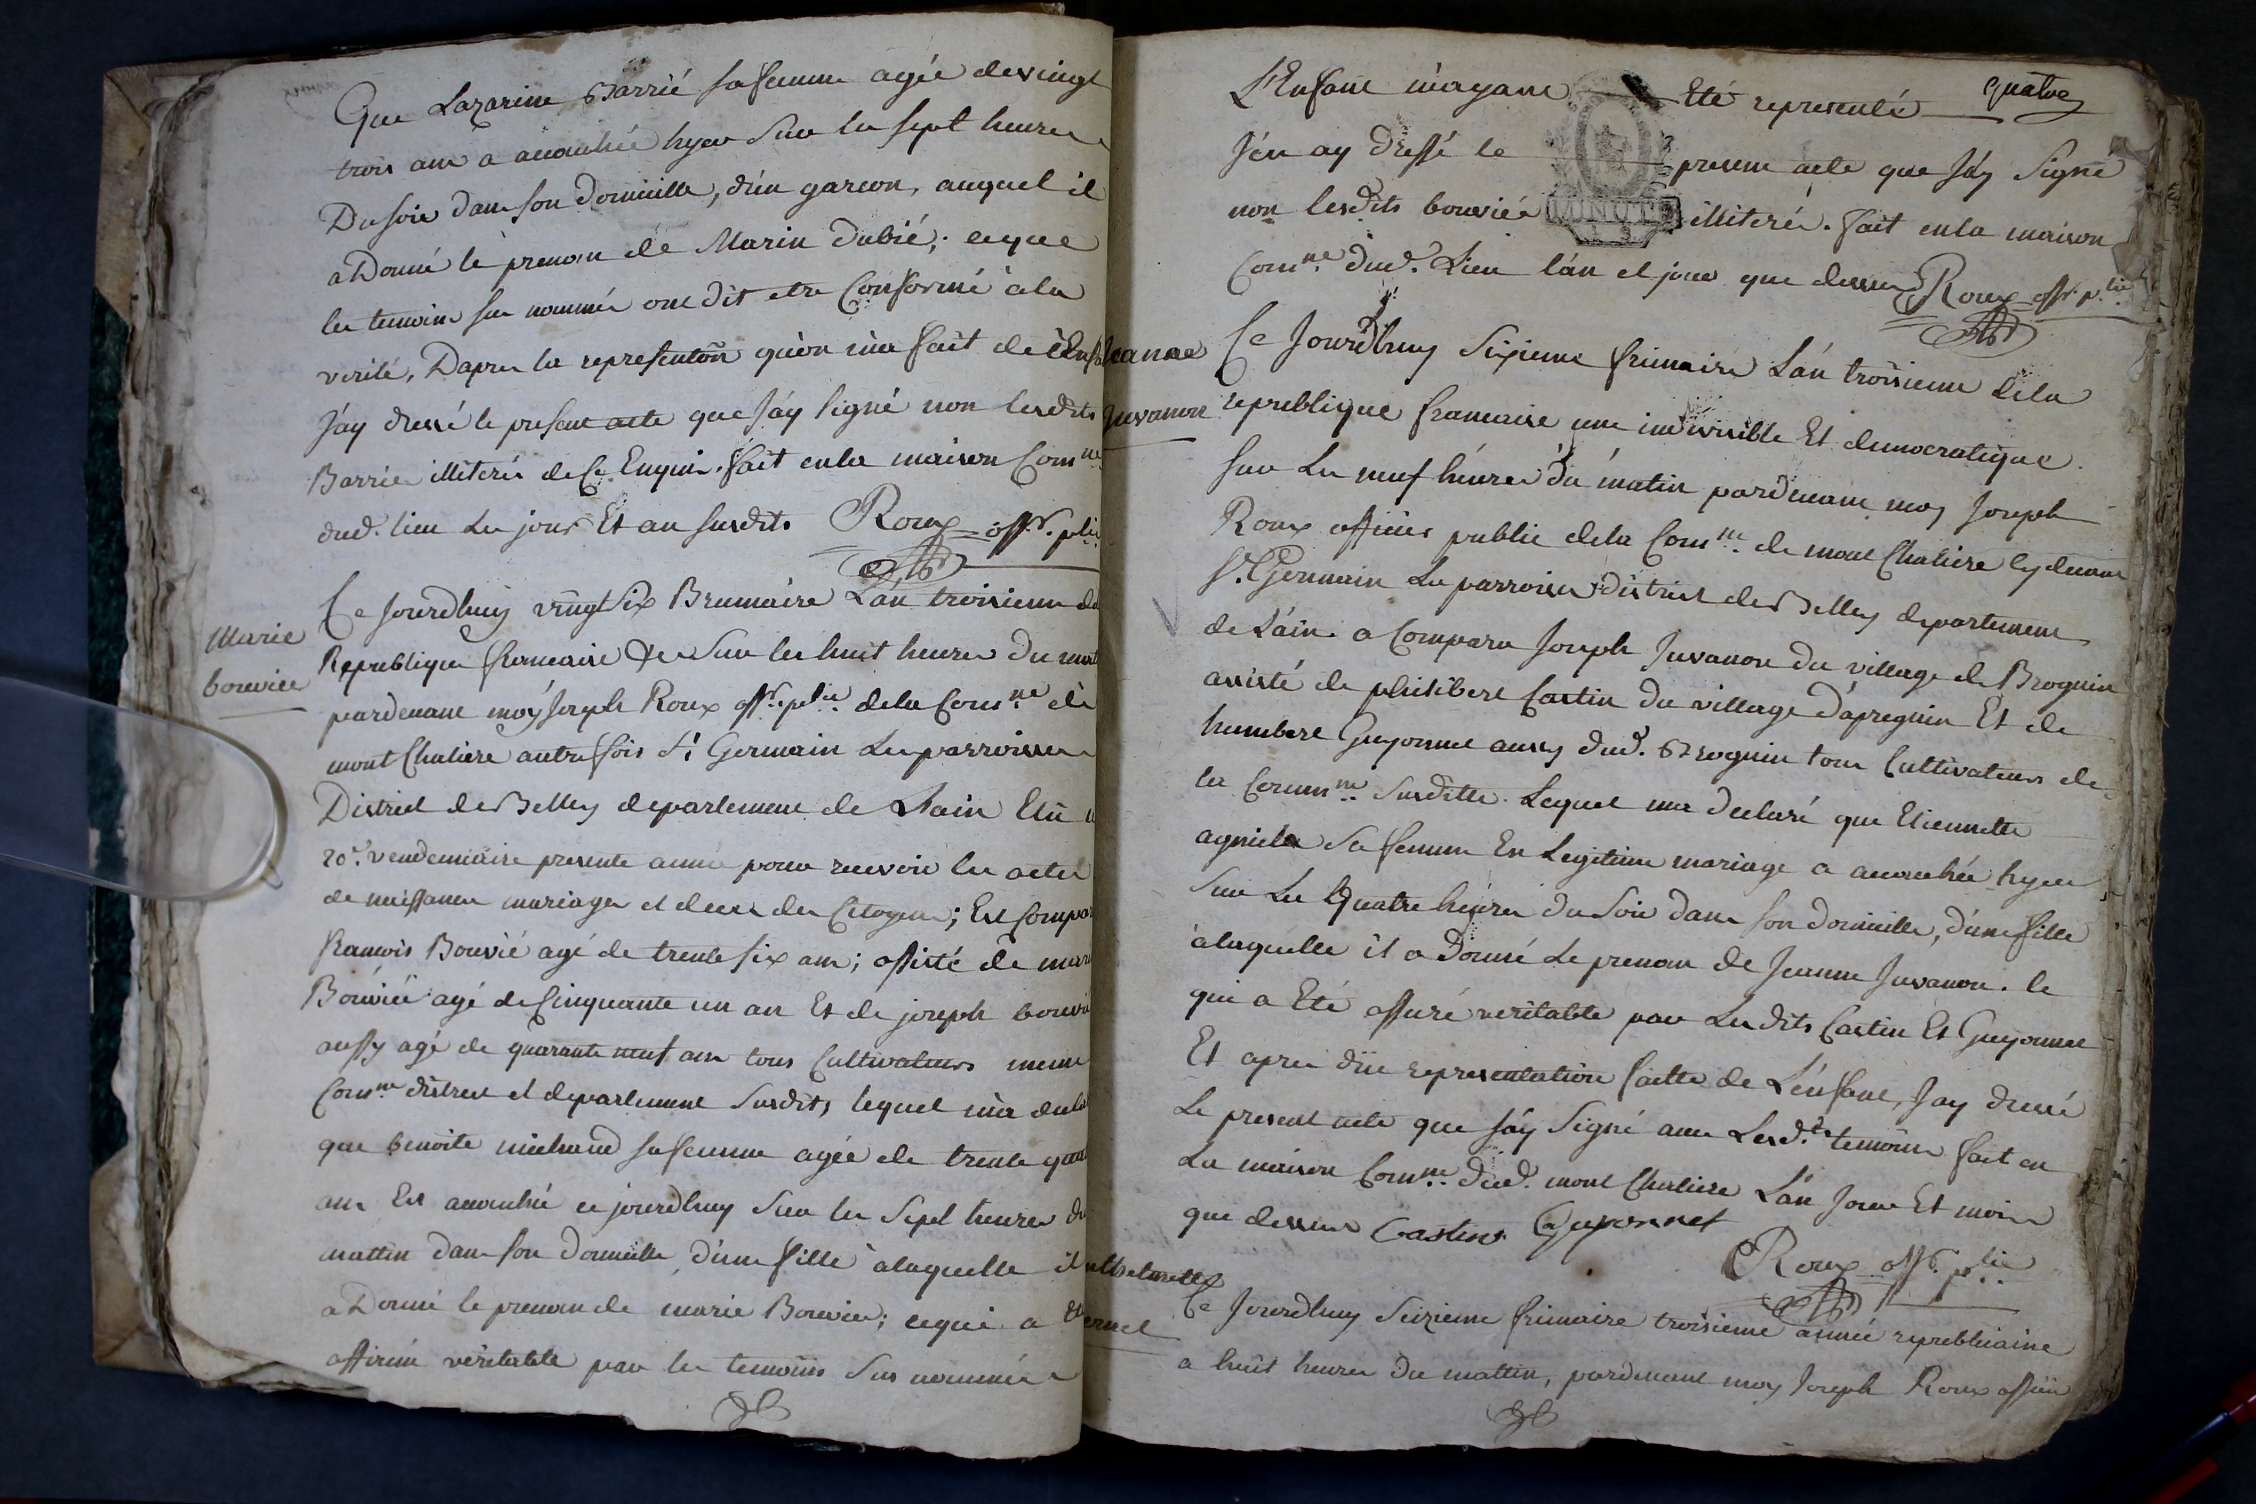 Que Lazarine Barrié sa femme agée de vingt
trois ans a accouchée hyer sur les sept heures
Du soir dans son domicille, d'un garcon, auquel il
a Donné le prenom de Marin dubié; ceque
les temoins sus nommés ont dit etre Conforme à la
verité, D'apres la representaõn qu'on m'a fait de l'Enfant
J'ay dressé le present acte que J'ay signé non lesdits
Barrié illiterés de ce Enquis. fait en la maison Comne
dud. lieu les jour Et an susdits Roux offr. plic
Marie
bouvier
Ce Jourdhuy vingt six Brumaire L'an troisieme de
Republique francaise &c sur les huit heures du mat
pardevant moy Joseph Roux offr. plic dela Comne de
mont Chaliere autrefois St Germain Les parroisses
District de Belley departement de L'ain Elu
20e. vendemiaire presente année pour recevoir les actes
de naissances mariages et deces des Citoyens; Est Compar
francois Bouvié agé de trente six ans; assisté de
Bouvié agé de Cinquante un an Et de joseph bouvié
aussy agé de quarante neuf ans tous Cultivateurs meme
Comne district et departement susdits, lequel m'a
que benoite michaud sa femme agée de trente
ans Est accouchée ce jourdhuy sur les sept heures du
mattin dans son domicille, d'une fille à laquelle il
a Donné le prenom de marie Bouvier; cequi a
affirmé véritable par les temoins sus nommés
quatre
L'Enfant m'ayant Eté representé
J'en ay dressé le present acte que J'ay signé
non lesdits bouviés illiterés. fait en la maison
MINUTE
Comne dud. Lieu l'an et jour que dessus Roux offr. plic
Jeanne
Juvanon
Ce Jourdhuy sixieme frimaire L'an troisieme dela
republique francaise une indivisible Et democratique
sur Les neuf heures du matin pardevant moy Joseph
Roux officier public dela Comne de mont Chaliere cy devant
St. Germain Les parroisses district de Belley departement
de L'ain a Comparu Joseph Juvanon du village de Brognin
assisté de philibert Castin du village d'apregnin Et de
humbert Guyonnet aussy dud. Brognin tous Cultivateurs de
la Commne susditte. Lequel m'a declaré que Etiennette
sa femme En Legitime mariage a accouchée hyer
sur Les Quatre heures du soir dans son domicille, d'une fille
à laquelle il a Donné Le prenom de Jeanne Juvanon. le
qui a Eté assuré veritable par Lesdits Castin Et Guyonnet
Et apres due representation faitte de L'enfant, J'ay dressé
Le present acte que J'ay Signé avec Lesd.ts temoins fait en
La maison Comne dud. mont Chaliere L'an Jour Et mois
que dessus Castin Guyonnet
Roux offr. plic
Ce Jourdhuy seizieme frimaire troisieme année republicaine
a huit heures du mattin, pardevant moy Joseph Roux officier